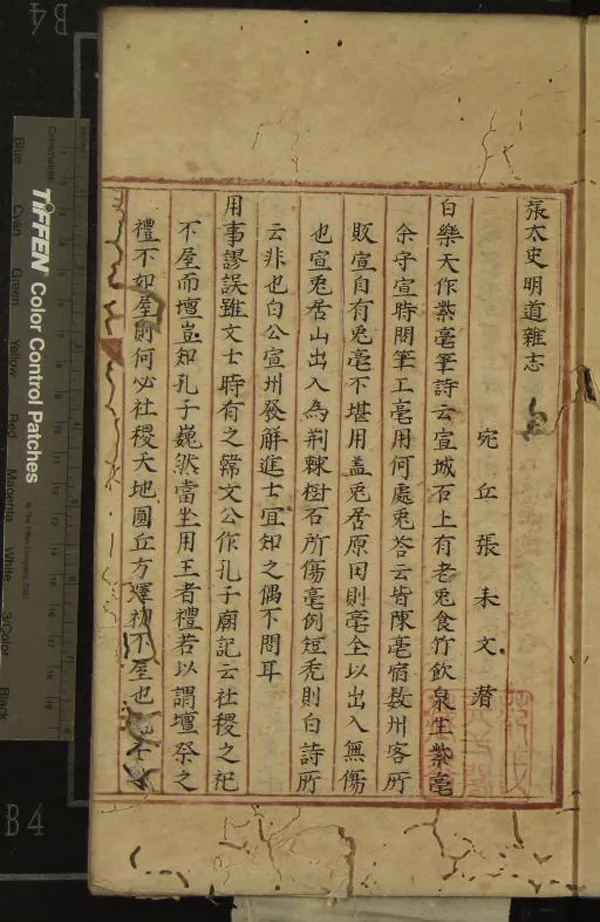 張太史明道雜志
宛丘張耒文潛
白樂天作紫毫筆詩云宣城石上有老兎食竹飲泉生紫毫
余守宣時問筆工毫用何處兎荅云皆陳亳宿數州客所
販宣自有兎毫不堪用盖兎居原田則毫全以出入無傷
也宣兎居山出入為荆棘樹石所傷毫例短禿則白詩所
云非也白公宣州發解進士宜知之偶不問耳
用事謬誤雖文士時有之韓文公作孔子廟記云社稷之祀
不屋而壇豈如孔子巍然當坐用王者禮若以謂壇祭之
禮不如屋則何必社稷天地圓丘方澤初不屋也
TIFFEN Color Control Patches
© The Tiffen Company, 2007
Centimetres
Blue
Cyan
Green
Yellow
Red
Magenta
White
3/Color
Black
B4
B4